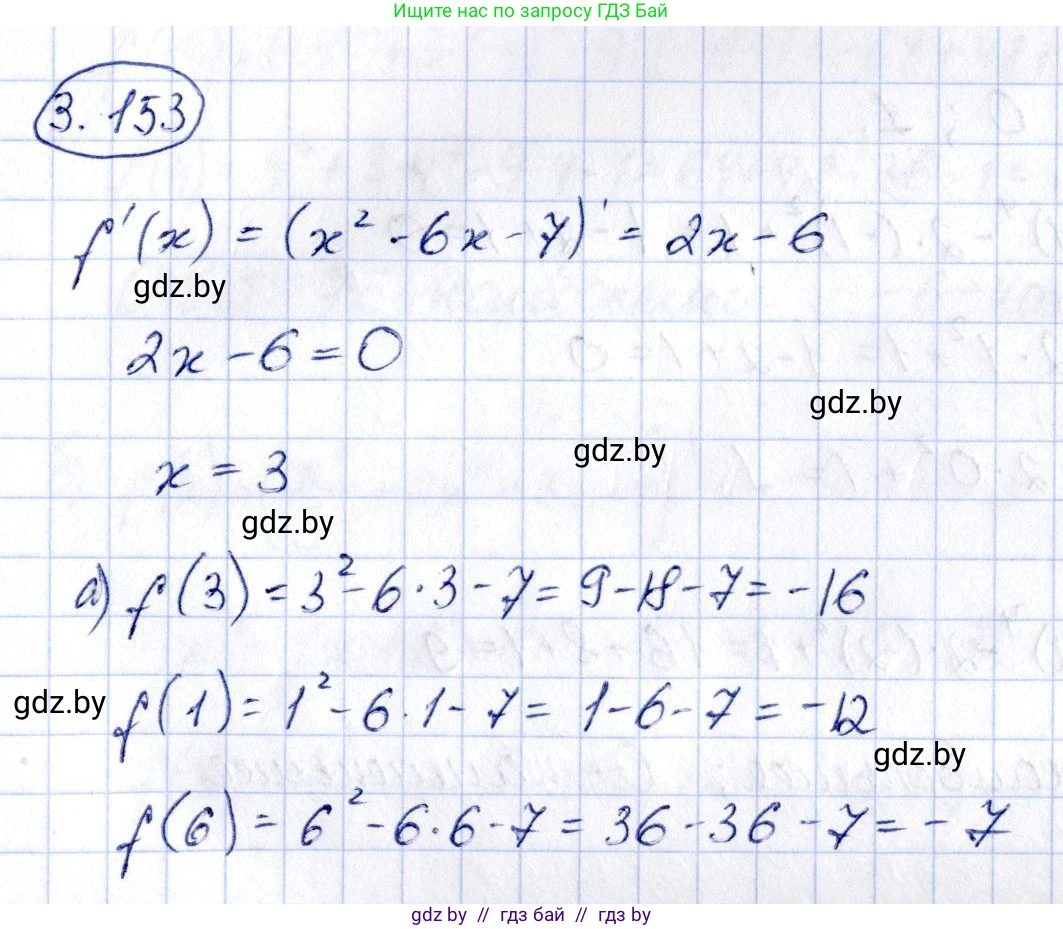 Ищите нас по запросу ГДЗ Бай
3.153
f'(x) = (x² - 6x - 7)' = 2x - 6
gdz.by
2x - 6 = 0
gdz.by
gdz.by
x = 3
gdz.by
а) f(3) = 3² - 6·3 - 7 = 9 - 18 - 7 = -16
gdz.by f(1) = 1² - 6·1 - 7 = 1 - 6 - 7 = -12
gdz.by
f(6) = 6² - 6·6 - 7 = 36 - 36 - 7 = - 7
gdz by // гдз бай // гдз by